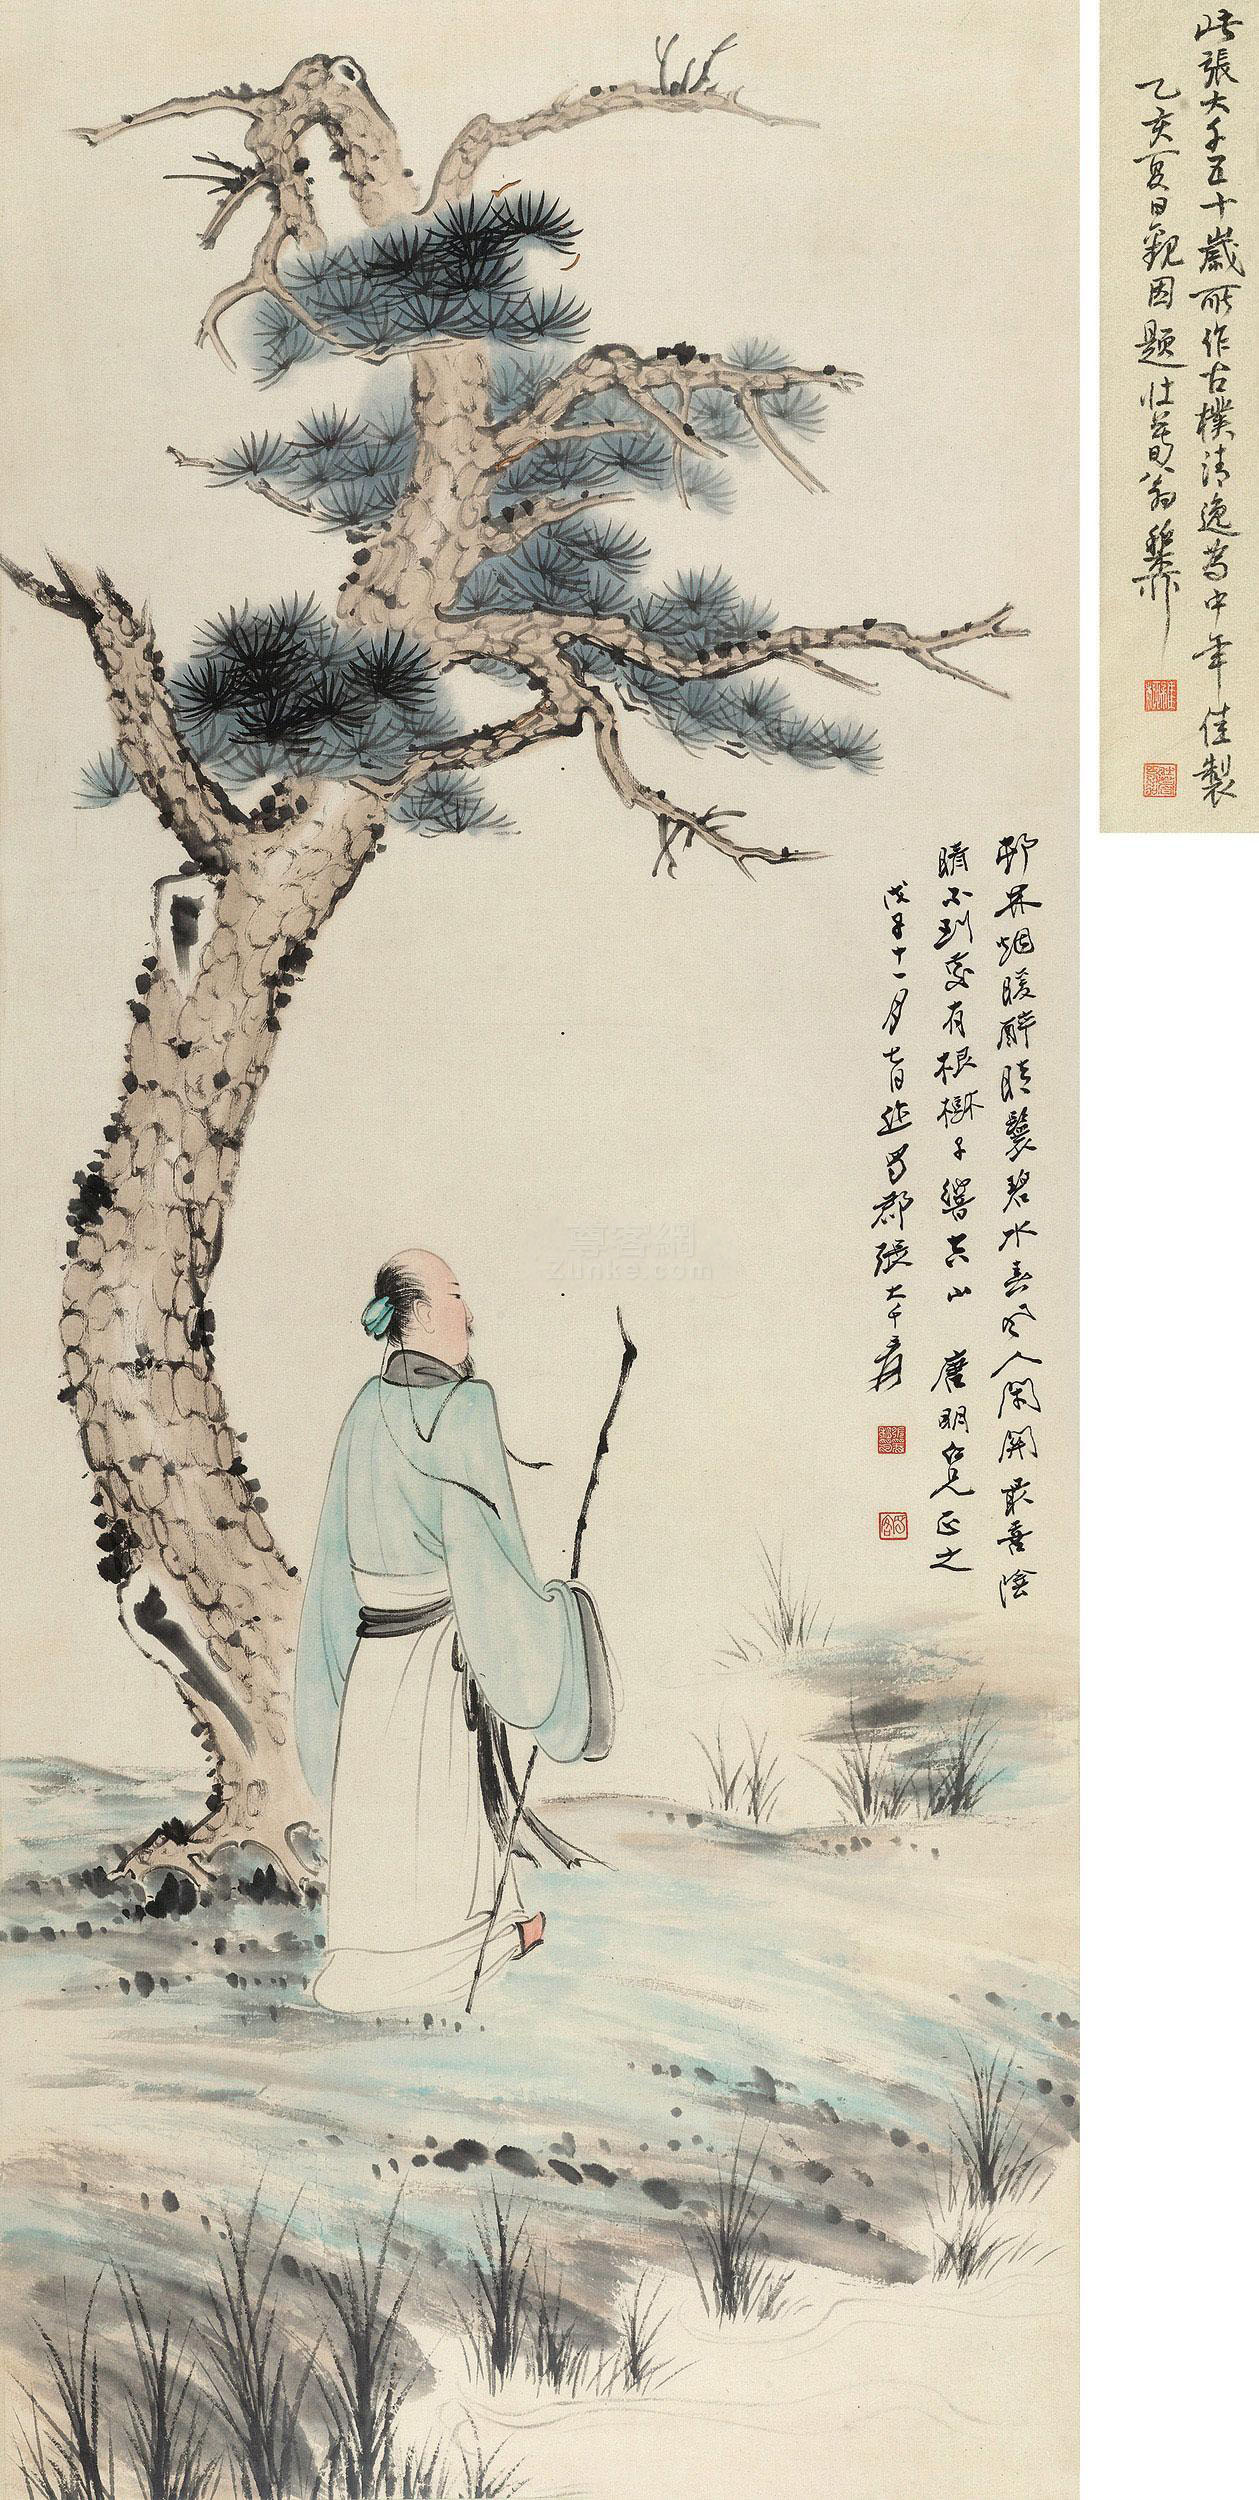 此張大千五十歲所作古樸清逸為中年佳製
乙亥夏日觀因題壯暮翁稚柳
烟暖醉晴鬟碧水春風人閑最喜陰
晴不到處有根樹子響空山 唐明仁兄正之
戊子十一月蜀郡張大千爰
尊客網
Zunke.com